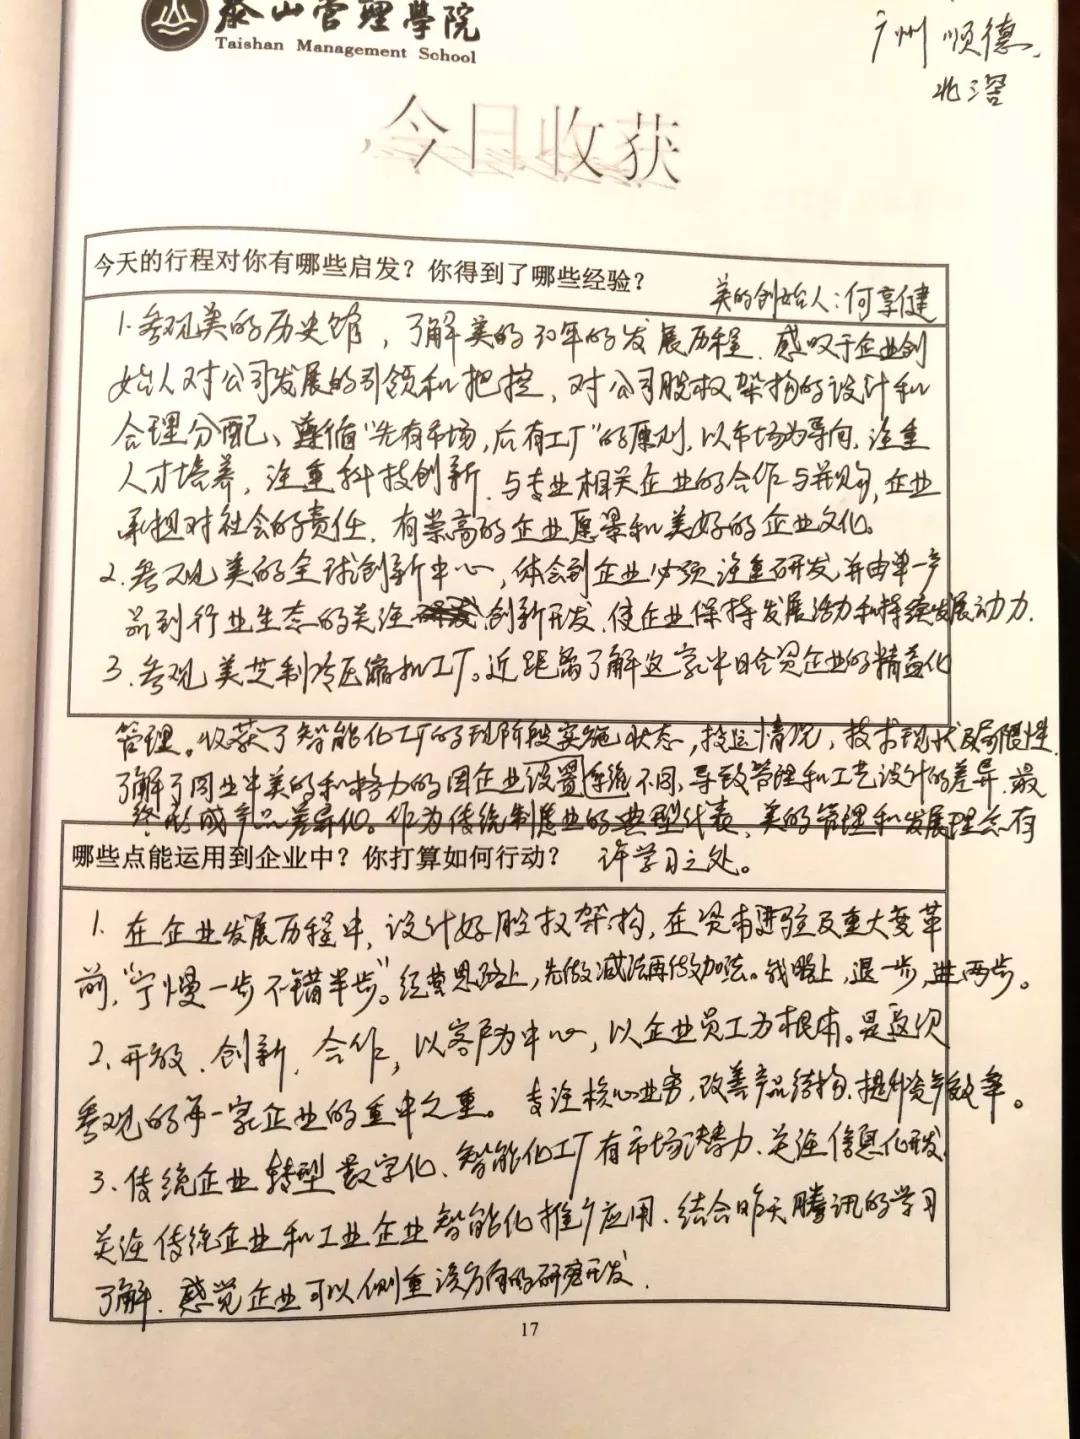 泰山管理學院
Taishan Management School
广州 顺德、
北滘
今日收获
今天的行程对你有哪些启发？你得到了哪些经验？
美的创始人：何享健
1.参观美的历史馆，了解美的30年的发展历程、感叹于企业创
始人对公司发展的引领和把控，对公司股权架构的设计和
合理分配、遵循“先有市场，后有工厂”的原则，以市场为导向，注重
人才培养，注重科技创新、与专业相关企业的合作与并购，企业
承担对社会的责任、有崇高的企业愿景和美好的企业文化。
2.参观美的全球创新中心，体会到企业必须注重研发，并由单一产
品到行业生态的关注创新开发、使企业保持发展活力和持续发展动力.
3.参观美芝制冷压缩机工厂。近距离了解这家中日合资企业的精益化
管理。收获了智能化工厂的现阶段实施状态，投运情况，技术现状及局限性.
了解了同业中美的和格力的因企业设置不同，导致管理和工艺设计的差异、最
终形成产品差异化。作为传统制造业的典型代表，美的管理和发展理念有
许学习之处。
哪些点能运用到企业中？你打算如何行动？
1.在企业发展历程中，设计好股权架构，在资本进驻及重大变革
前，“宁慢一步不错半步”。经营思路上，先做减法再做加法。战略上，退一步，进两步。
2.开放、创新、合作，以客户为中心，以企业员工为根本。是这次
参观的第一家企业的重中之重。专注核心业务，改善产品结构、提升资产效率。
3.传统企业转型数字化、智能化工厂有市场潜力、关注信息化开发、
关注传统企业和工业企业智能化推广应用、结合昨天腾讯的学习
了解、感觉企业可以侧重该方向的研究开发.
17